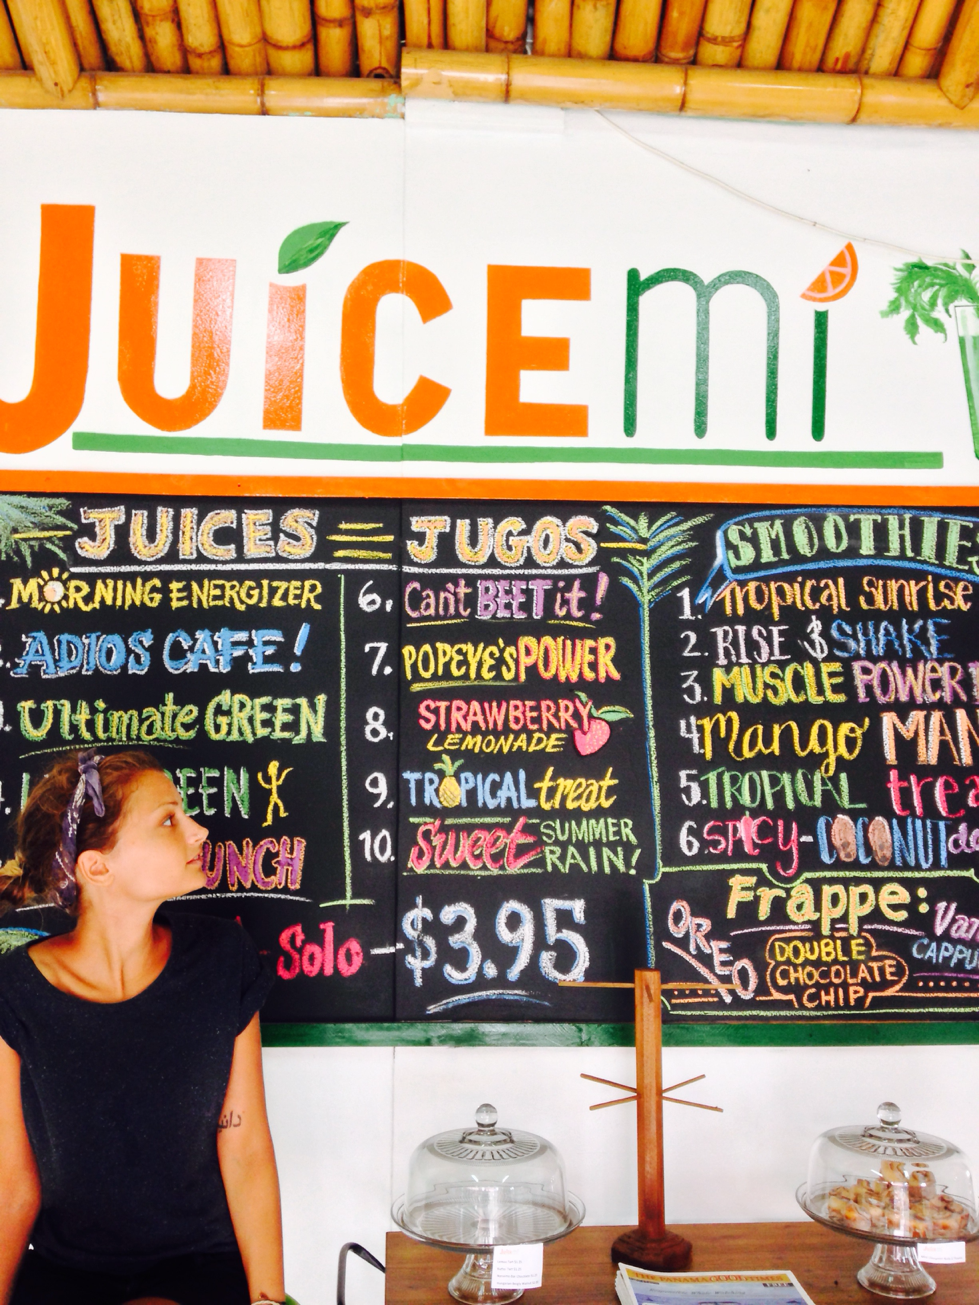 JUiCEmi
JUICES
MORNING ENERGIZER
ADIOS CAFE!
Ultimate GREEN
EEN
UNCH
Solo - $3.95
JUGOS
6. Can't BEET it!
7. POPEYE'S POWER
8. STRAWBERRY
LEMONADE
9. TROPICAL treat
10. Sweet SUMMER
RAIN!
SMOOTHIE
1. Tropical sunrise
2. RISE $ SHAKE
3. MUSCLE POWER
4 Mango MAN
5. TROPICAL trea
6. SPICY-COCONUT de
Frappe:
OREO
DOUBLE
CHOCOLATE
CHIP
Van
CAPPU
THE PANAMA GOOD TIMES
FREE